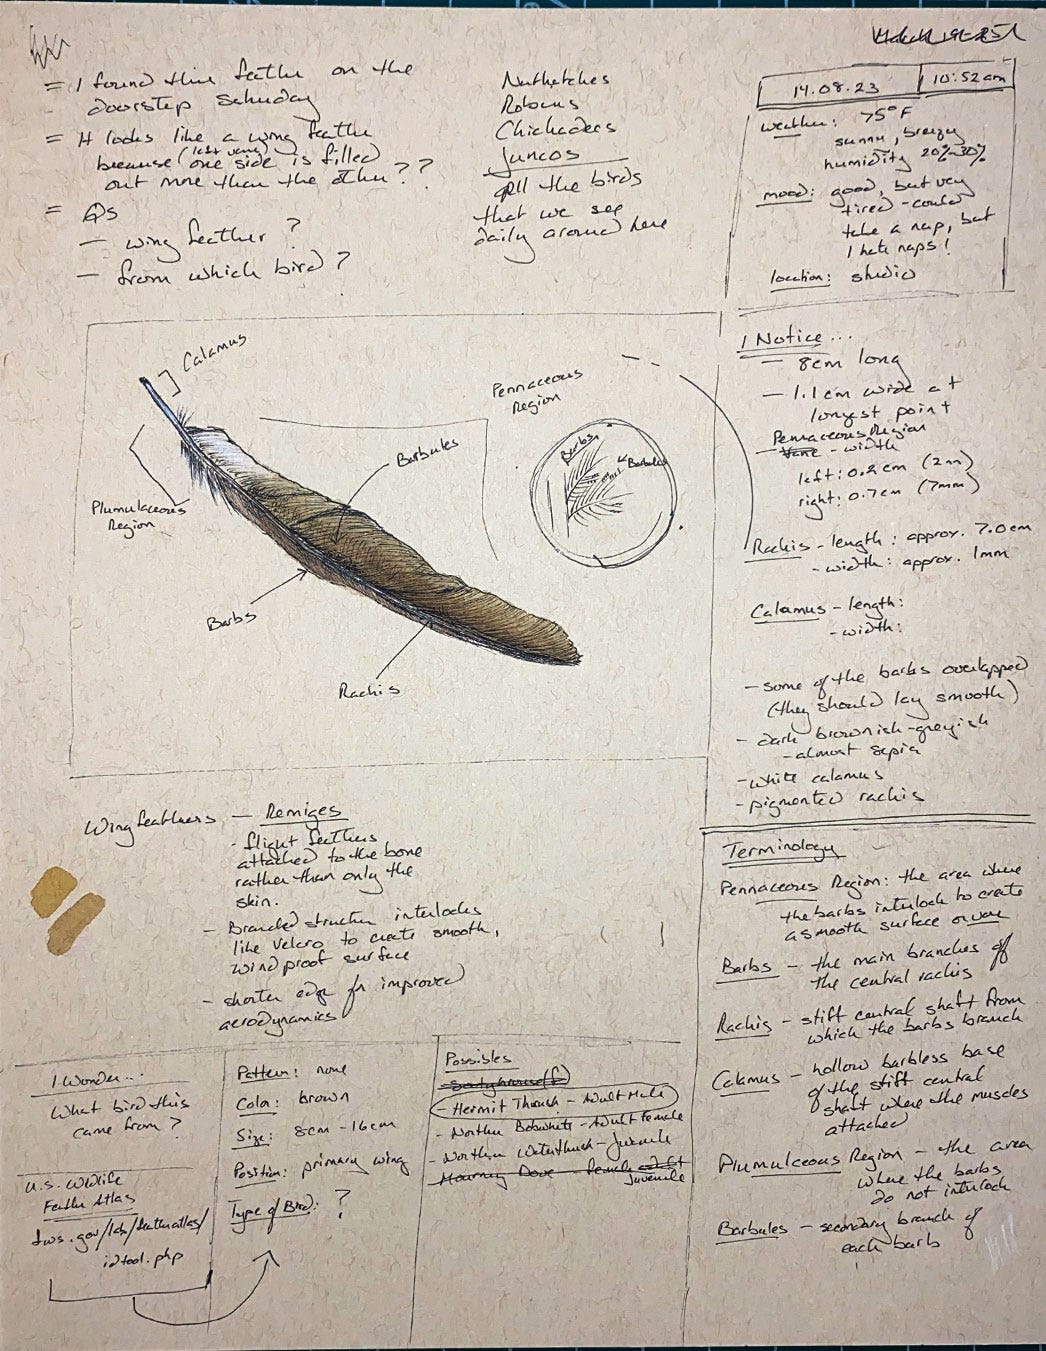 = I found this feather on the
doorstep Saturday
= It looks like a wing feather
because (left vane) one side is filled
out more than the other??
= Qs
- wing feather?
- from which bird?
Nuthatches
Robins
Chickadees
Juncos
all the birds
that we see
daily around here
14.08.23
10:52am
weather: 75°F
sunny, breezy
humidity 20%-30%
mood: good, but very
tired - could
take a nap, but
I hate naps!
location: studio
Calamus
Plumulaceous
Region
Barbs
Rachis
Barbules
Pennaceous
Region
Barbs
Barbules
I Notice...
- 8cm long
- 1.1cm wide at
longest point
Pennaceous Region
- Vane - width
left: 0.2cm (2m)
right: 0.7cm (7mm)
Rachis - length: approx. 7.0cm
- width: approx. 1mm
Calamus - length:
- width:
- some of the barbs overlapped
(they should lay smooth)
- dark brownish-greyish
- almost sepia
- white calamus
- pigmented rachis
Wing feathers - Remiges
- flight feathers
attached to the bone
rather than only the
skin.
- Branched structure interlocks
like velcro to create smooth,
windproof surface
- shorter edge for improved
aerodynamics
Terminology
Pennaceous Region: the area where
the barbs interlock to create
a smooth surface or vane
Barbs - the main branches of
the central rachis
Rachis - stiff central shaft from
which the barbs branch
Calamus - hollow barbless base
of the stiff central
shaft where the muscles
attached
Plumulaceous Region - the area
where the barbs
do not interlock
Barbules - secondary branch of
each barb
I Wonder...
What bird this
came from?
U.S. Wildlife
Feather Atlas
fws.gov/lab/featheratlas/
idtool.php
Pattern: none
Color: brown
Size: 8cm - 16cm
Position: primary wing
Type of Bird: ?
Possibles
- Hermit Thrush - Adult Male
- Northern Bobwhite - Adult Female
- Northern Waterthrush - Juvenile
Mourning Dove - Female adult
juvenile